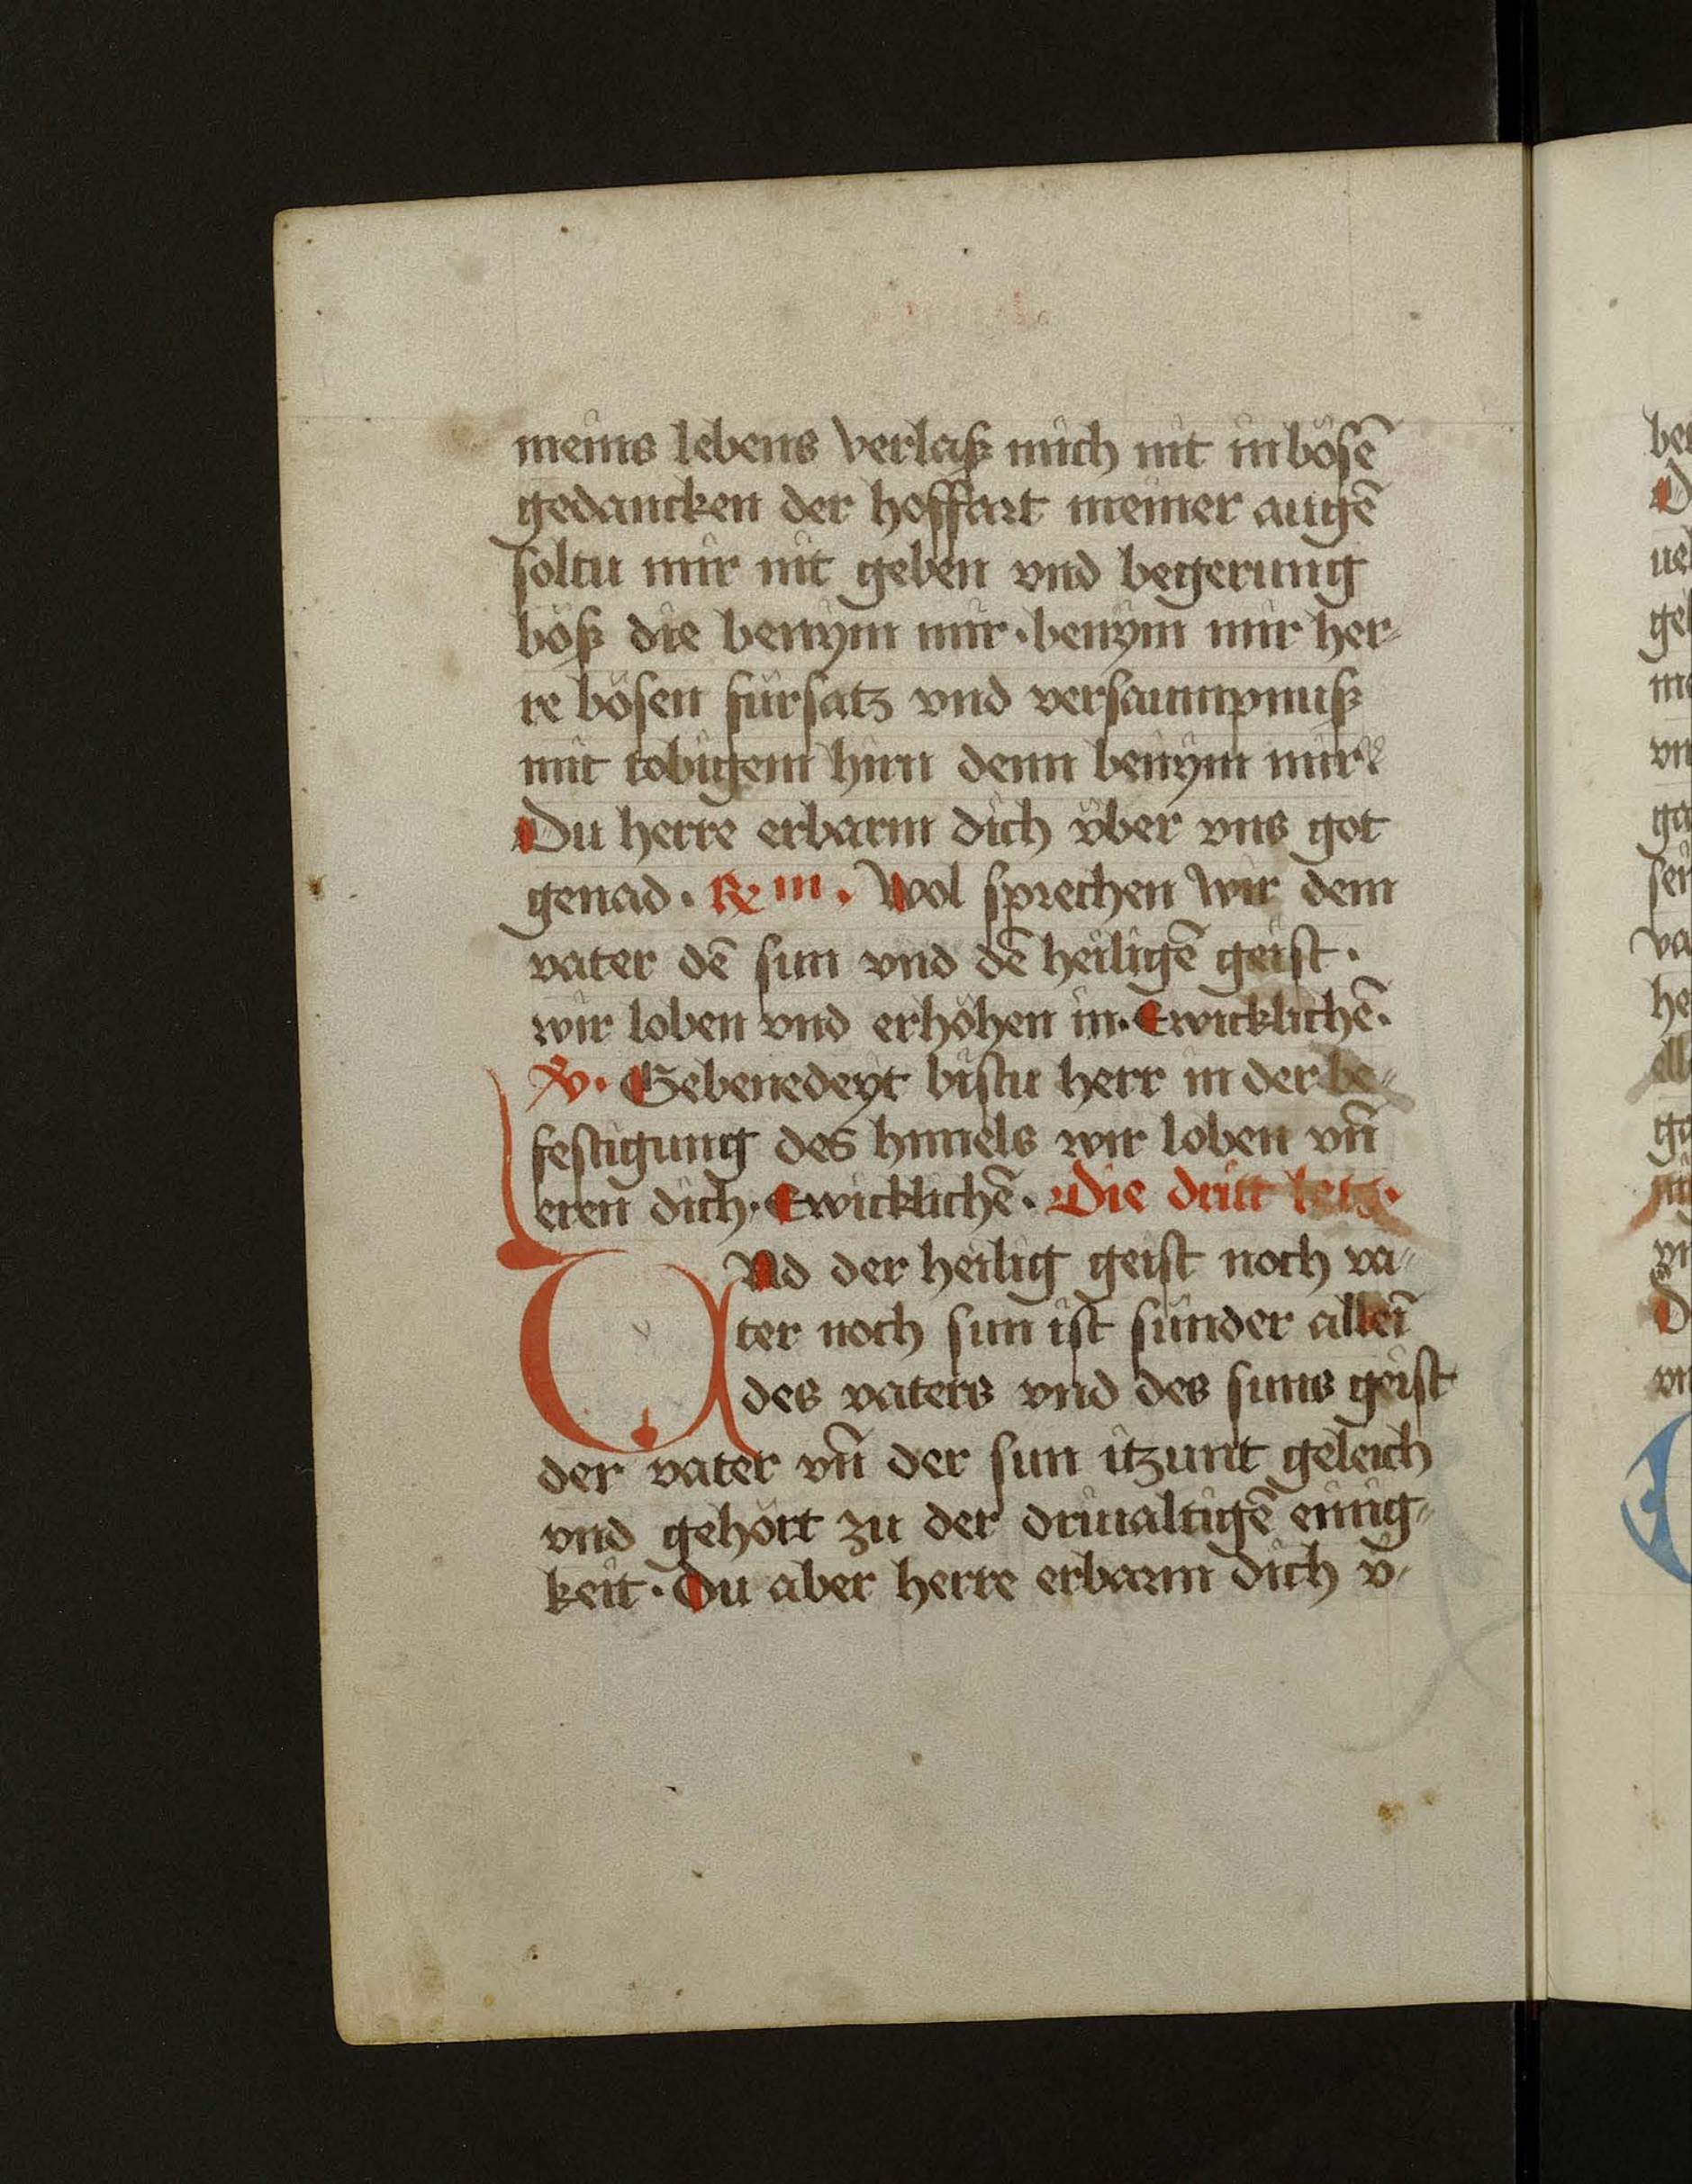 meins lebens verlaß mich nit in bösē
gedancken der hoffart meiner augē
soltu mir nit geben vnd begerung
böß die benym mir · benym mir her⸗
re bösen fürsatz vnd versaumpnuß
mit tobigem hirn denn benym mir
Du herre erbarm dich vber vns got
genad · ℟ III · Wol sprechen wir dem
vater dē sun vnd dē heiligē geist ·
wir loben vnd erhöhen in · Ewicklichē ·
℣ · Gebenedeyt bistu herr in der be⸗
festigung des himels wir loben vn̄
eren dich · Ewicklichē · Die dritt letz ·
VNd der heilig geist noch va⸗
ter noch sun ist sunder alleī
des vaters vnd des suns geist
der vater vn̄ der sun itzunt geleich
vnd gehört zu der driualtigē einig⸗
keit · Du aber herre erbarm dich v̈⸗